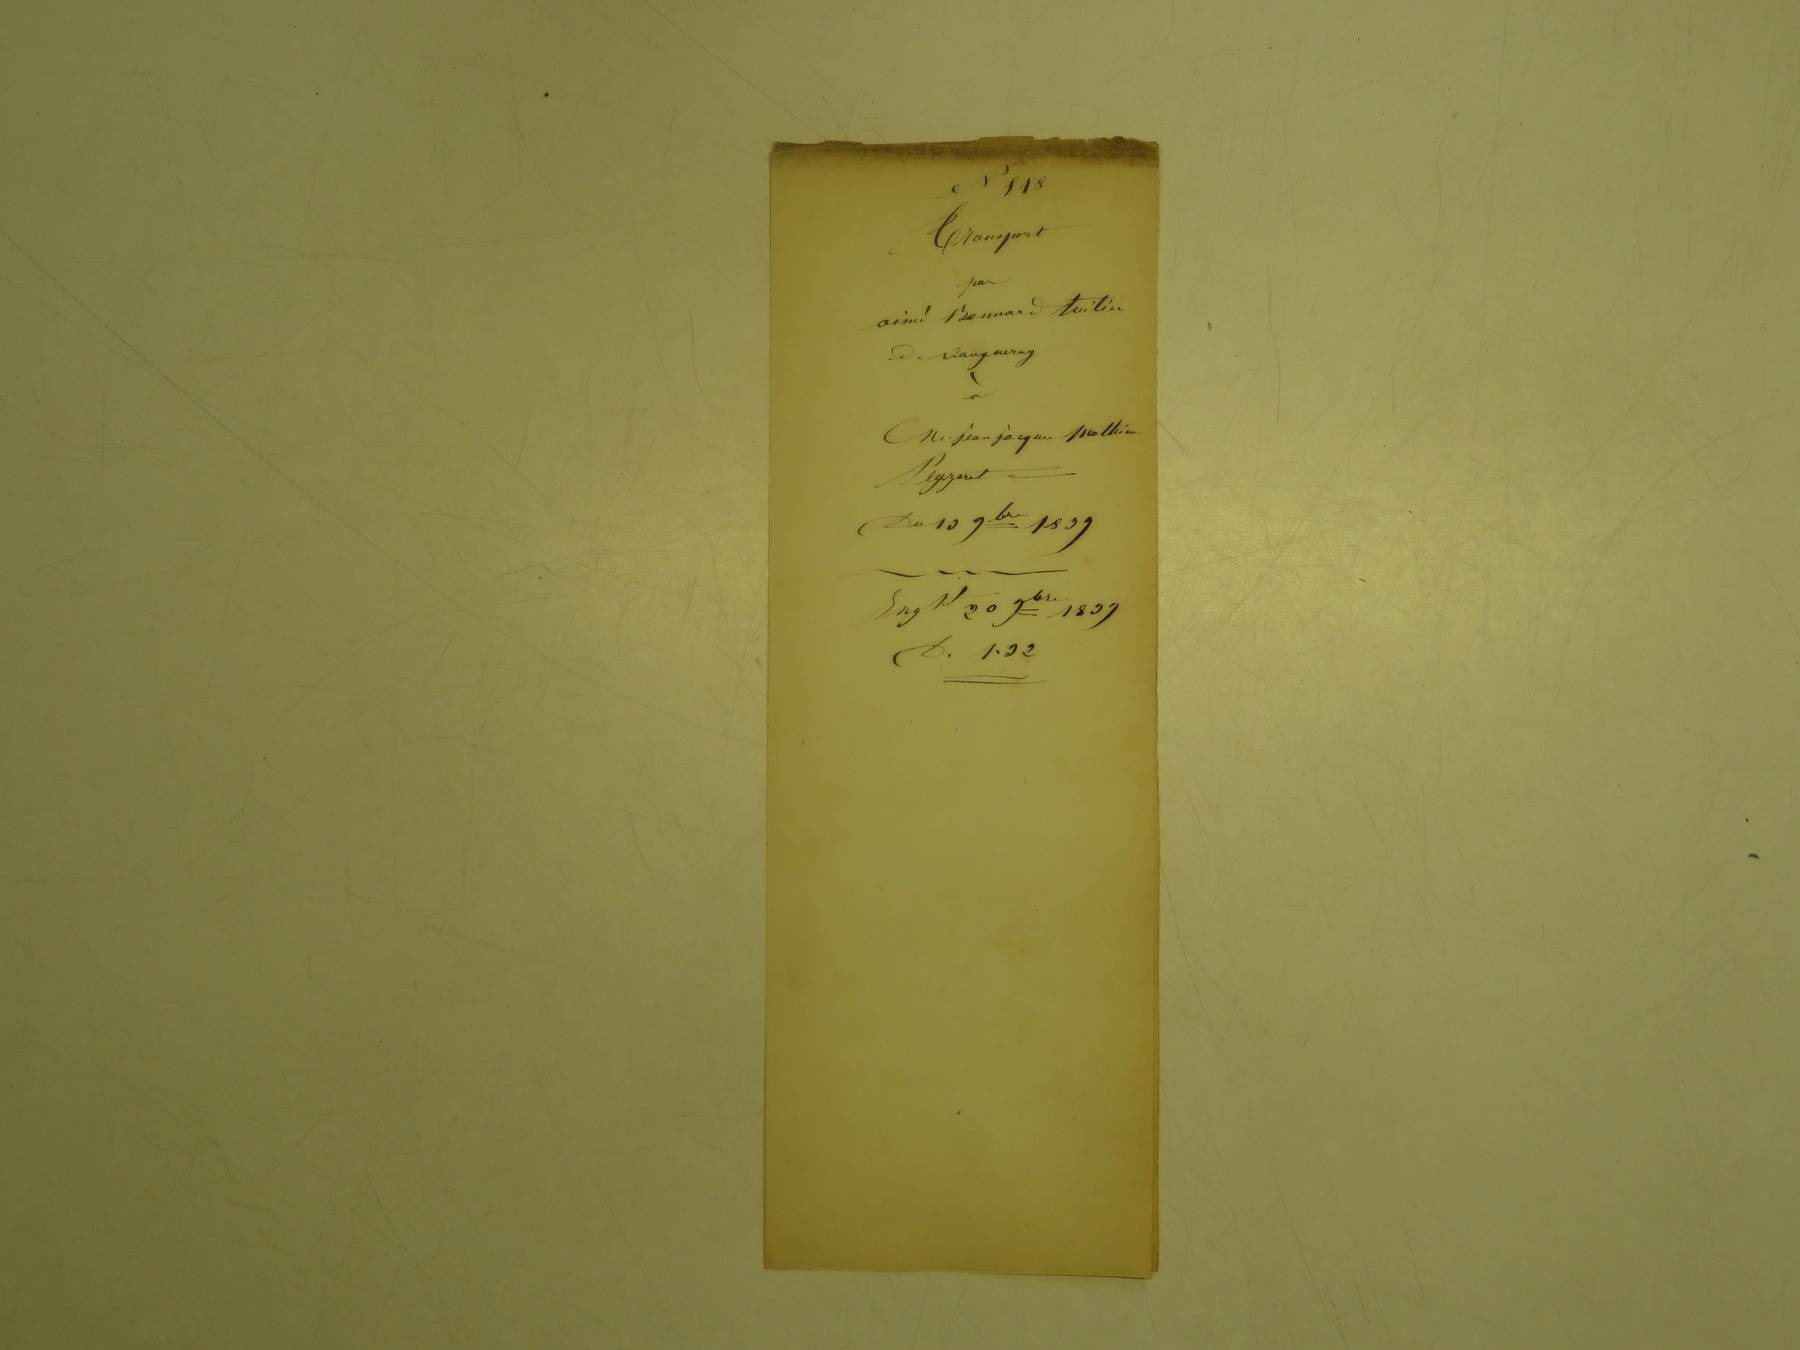 N° 118
Transport
par
aimé Bonnard
de Vaugneray
à
Mr. jean jacques Mathieu
Peyzaret
Du 19 9bre 1839
Eregtré 20 9bre 1839
D. 1.32